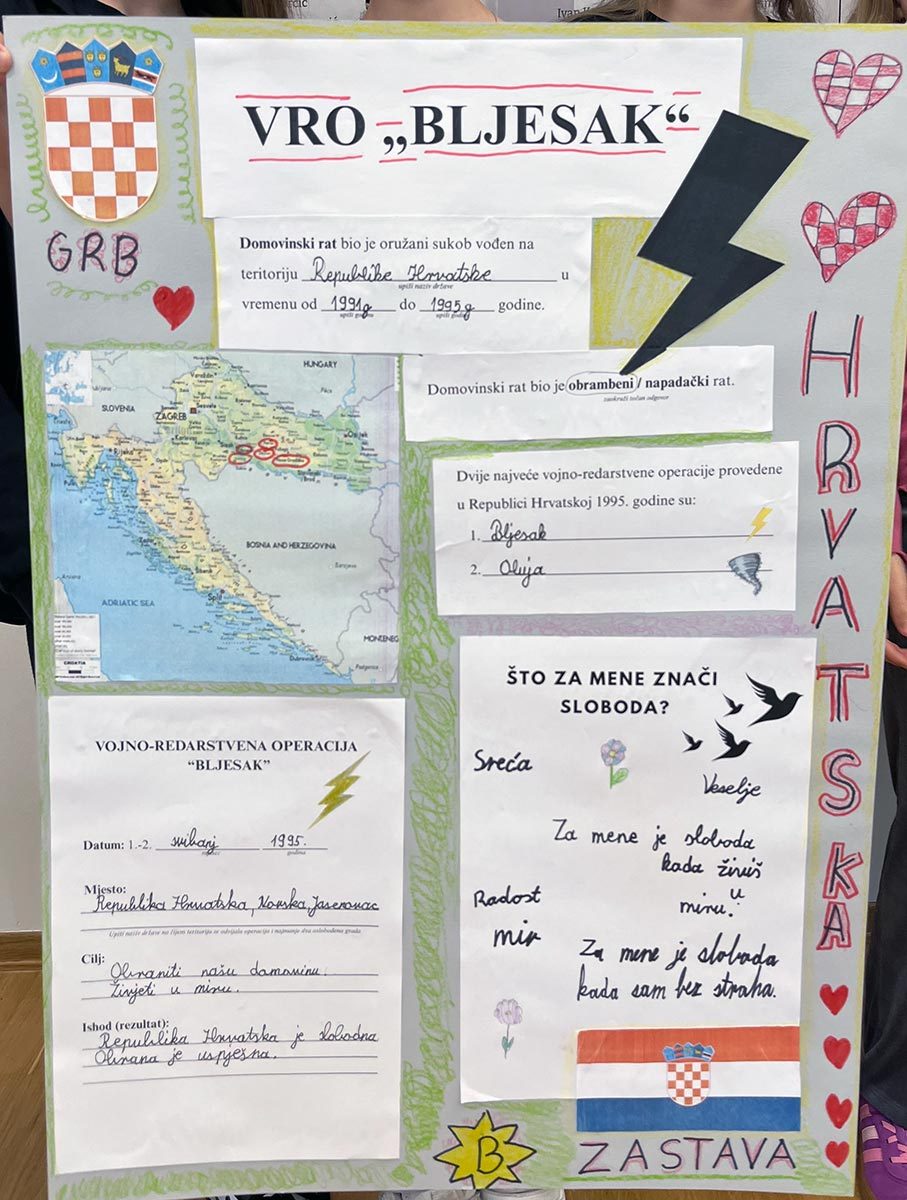 Ivan K
VRO „BLJESAK“
GRB
Domovinski rat bio je oružani sukob vođen na
teritoriju Republike Hrvatske u
upiši naziv države
vremenu od 1991g do 1995g godine.
Domovinski rat bio je obrambeni / napadački rat.
zaokruži točan odgovor
Dvije najveće vojno-redarstvene operacije provedene
u Republici Hrvatskoj 1995. godine su:
1. Bljesak
2. Oluja
HUNGARY
SLOVENIA
ZAGREB
Rijeka
Karlovac
Osijek
BOSNIA AND HERZEGOVINA
Split
ADRIATIC SEA
Dubrovnik
CROATIA
HRVATSKA
VOJNO-REDARSTVENA OPERACIJA
“BLJESAK”
Datum: 1.-2. svibanj 1995.
godina
Mjesto:
Republika Hrvatska, Novska, Jasenovac
Upiši naziv države na čijem teritoriju se odvijala operacija i najmanje dva oslobođena grada
Cilj:
Obraniti našu domovinu.
Živjeti u miru.
Ishod (rezultat):
Republika Hrvatska je slobodna
Obrana je uspješna.
ŠTO ZA MENE ZNAČI
SLOBODA?
Sreća
Veselje
Za mene je sloboda
kada živiš
u
miru.
Radost
mir
Za mene je sloboda
kada sam bez straha.
B
ZASTAVA